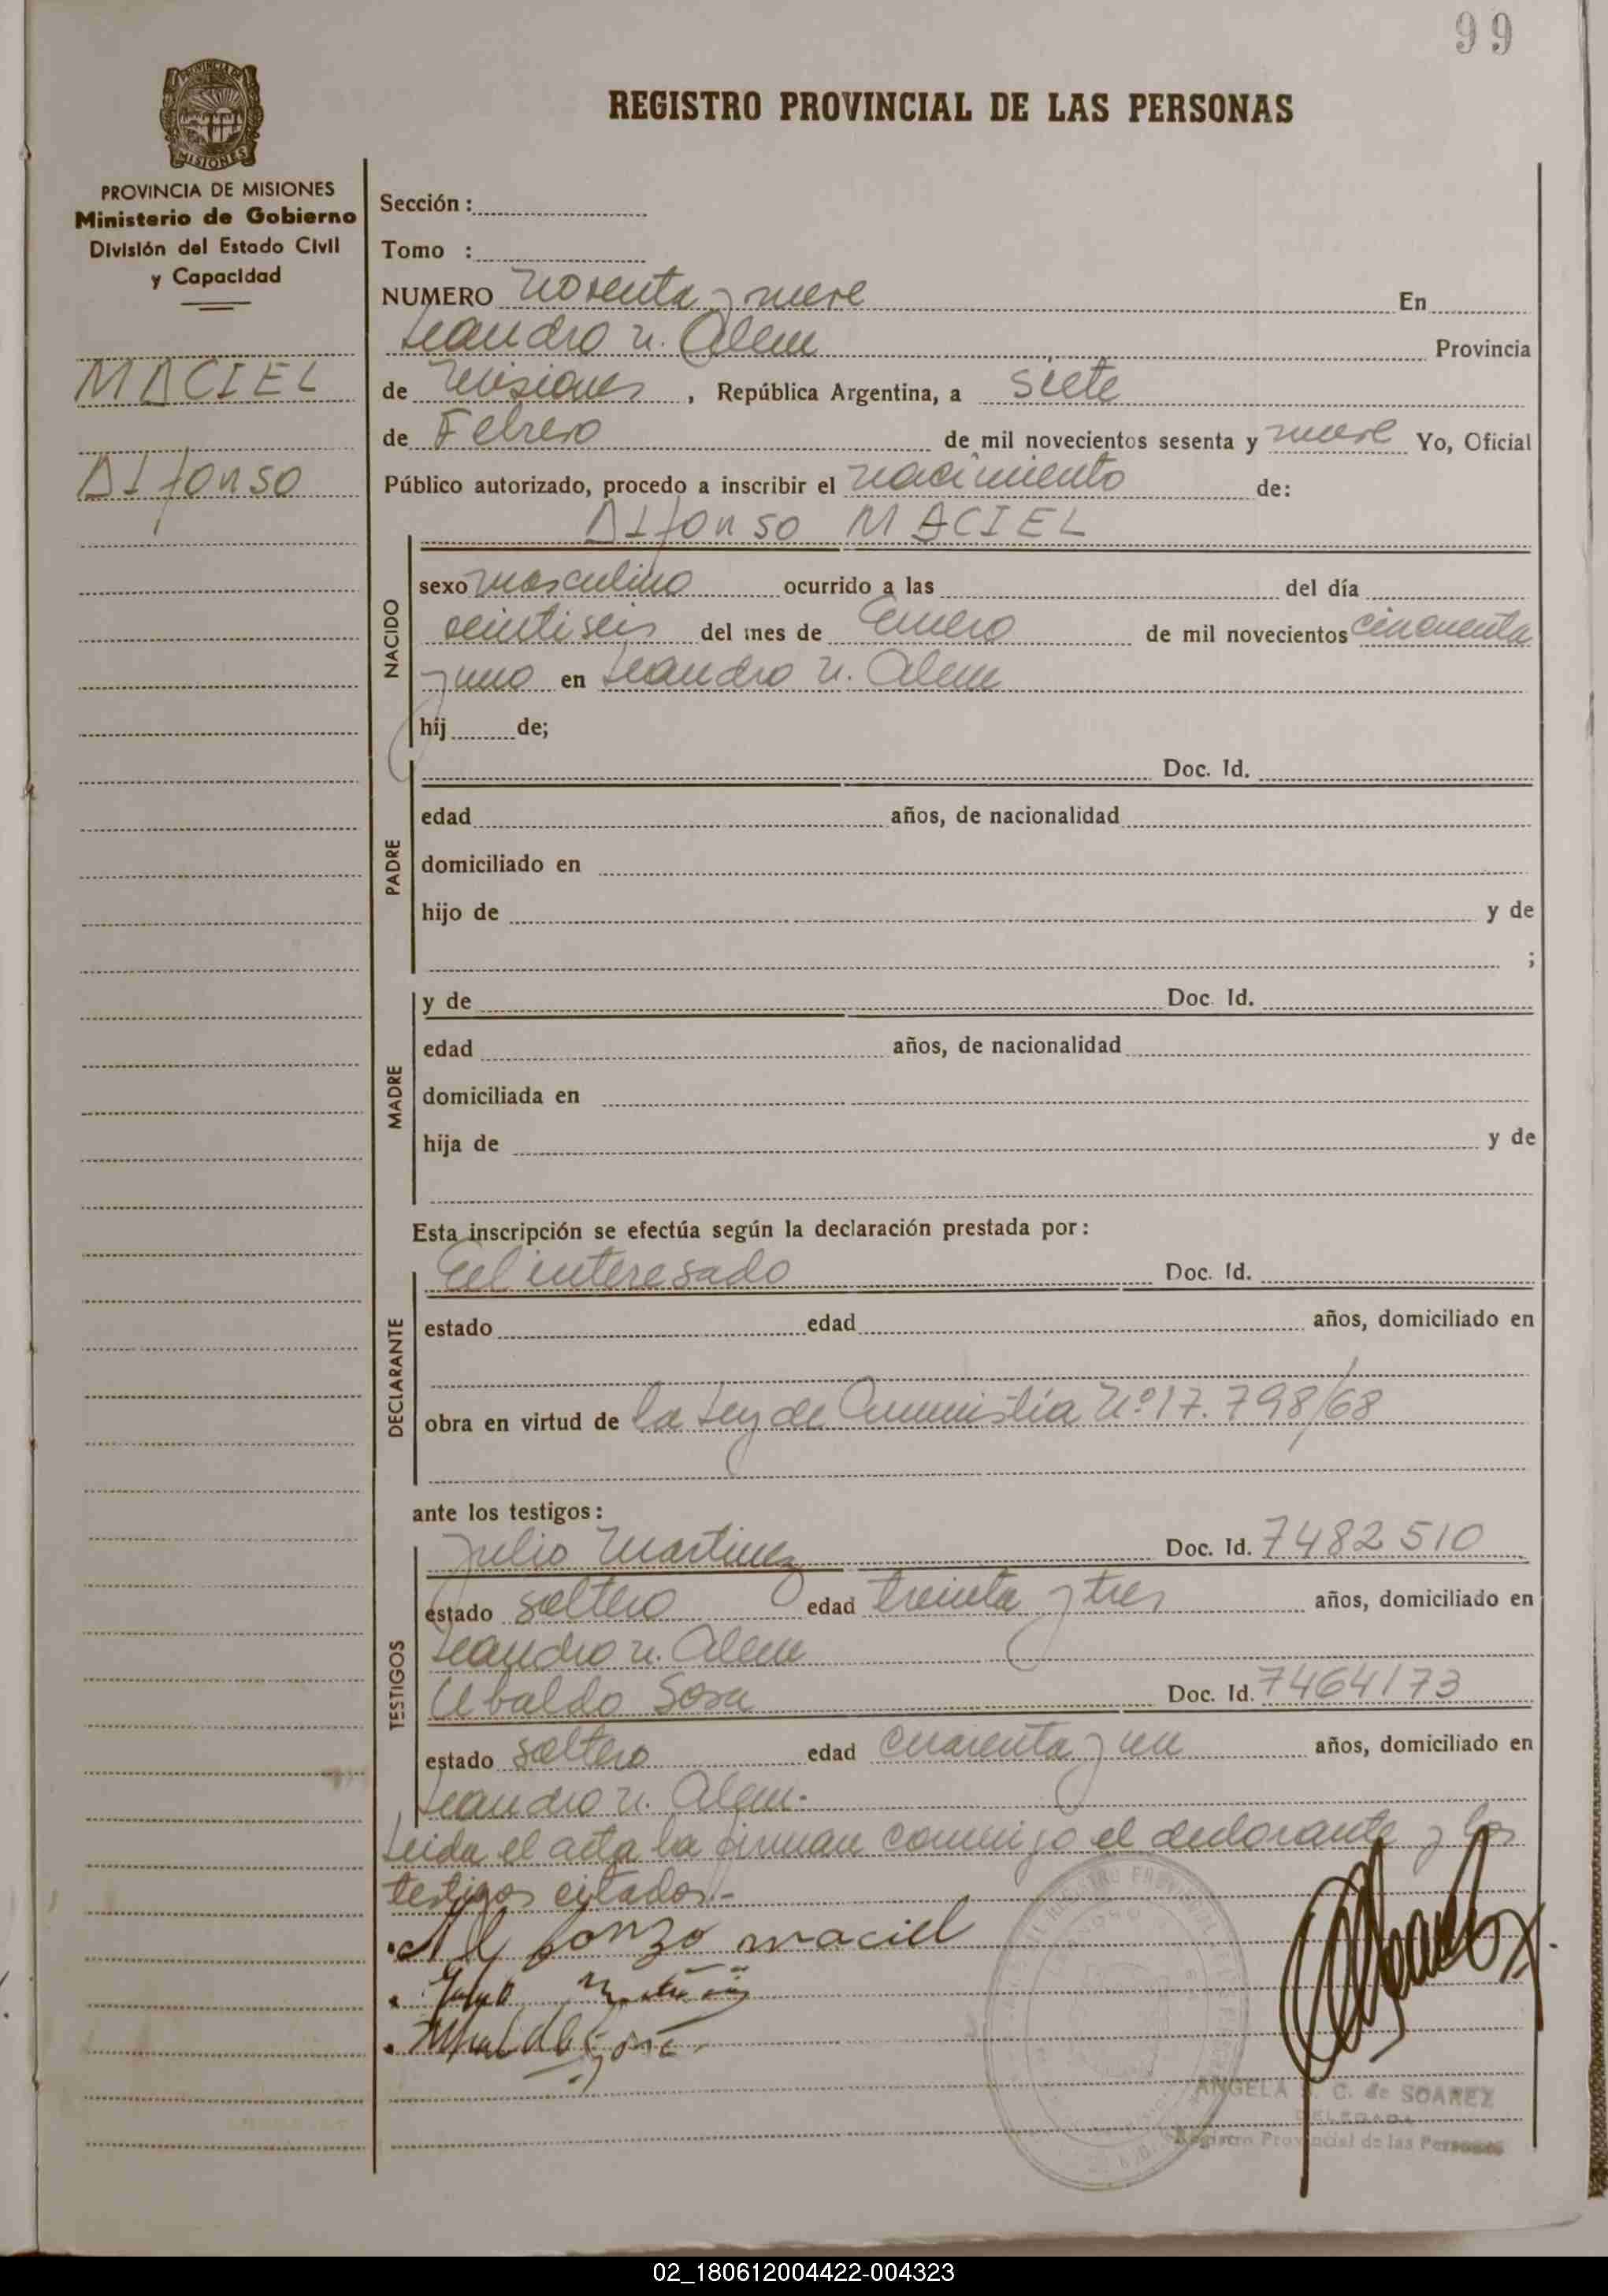 99
MISIONES
PROVINCIA DE MISIONES
Ministerio de Gobierno
División del Estado Civil
y Capacidad
MACIEL
Alfonso
REGISTRO PROVINCIAL DE LAS PERSONAS
Sección :
Tomo :
NUMERO Noventa y nueve En
Leandro N. Alem Provincia
de Misiones , República Argentina, a siete
de Febrero de mil novecientos sesenta y nueve Yo, Oficial
Público autorizado, procedo a inscribir el nacimiento de:
Alfonso MACIEL
NACIDO
sexo masculino ocurrido a las del día
veintiseis del mes de Enero de mil novecientos cincuenta
y uno en Leandro N. Alem
hij de;
PADRE
Doc. Id.
edad años, de nacionalidad
domiciliado en
hijo de y de
;
MADRE
y de Doc. Id.
edad años, de nacionalidad
domiciliada en
hija de y de
Esta inscripción se efectúa según la declaración prestada por:
DECLARANTE
El interesado Doc. Id.
estado edad años, domiciliado en
obra en virtud de la Ley de Amnistía Nº 17.798/68
ante los testigos:
TESTIGOS
Julio Martinez Doc. Id. 7482510
estado soltero edad treinta y tres años, domiciliado en
Leandro N. Alem
Ubaldo Sosa Doc. Id. 7464173
estado soltero edad cuarenta y un años, domiciliado en
Leandro N. Alem.
Leida el acta la firman conmigo el declarante y los
testigos citados.-
Alfonzo maciel
ANGELA C. de SOAREZ
DELEGADA
Registro Provincial de las Personas
02_180612004422-004323